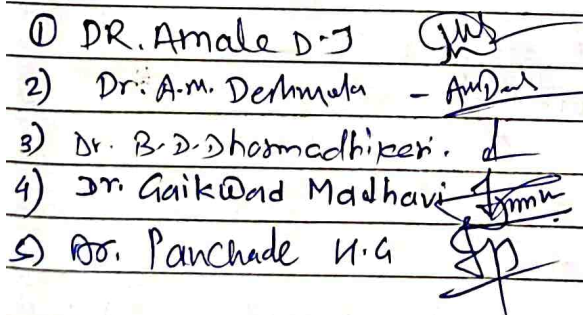 ① DR. Amale D.J
2) Dr. A.M. Deshmukh - AMDesh
3) Dr. B.D. Dharmadhikari.
4) Dr. Gaikwad Madhavi
5) Dr. Panchade H.G